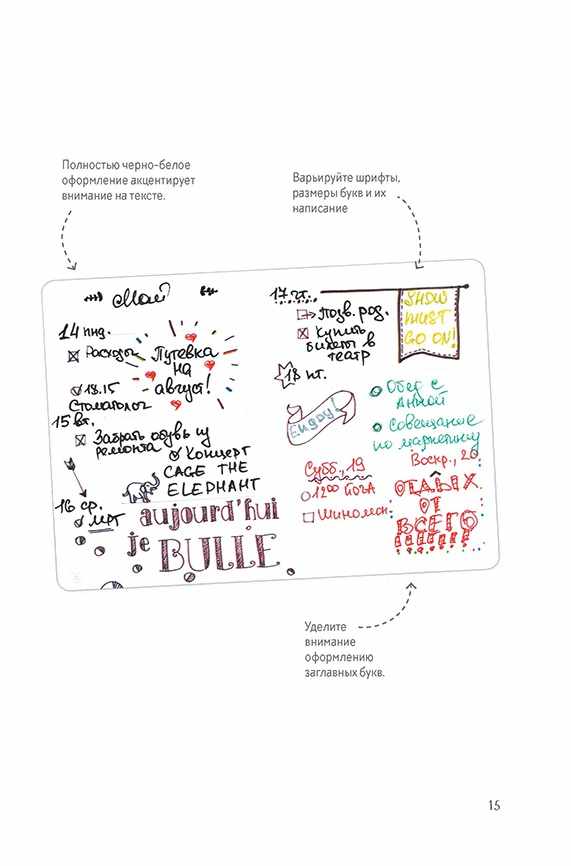 Полностью черно-белое
оформление акцентирует
внимание на тексте.
Варьируйте шрифты,
размеры букв и их
написание
Май
14 пнд.
Расходы
18.15
Стоматолог
Путевка
на
август!
15 вт.
Забрать обувь из
ремонта
Концерт
CAGE THE
ELEPHANT
16 ср.
МРТ
aujourd'hui
je
BULLE
17 чт.
Позв. род.
Купить
билеты в
театр
SHOW
MUST
GO ON!
18 пт.
Enjoy!
Обед с
Анной
Совещание
по маркетингу
Субб., 19
12:00 йога
Шиномон.
Воскр., 20
ОТДЫХ
ОТ
ВСЕГО
!!!!!!!
Уделите
внимание
оформлению
заглавных букв.
15